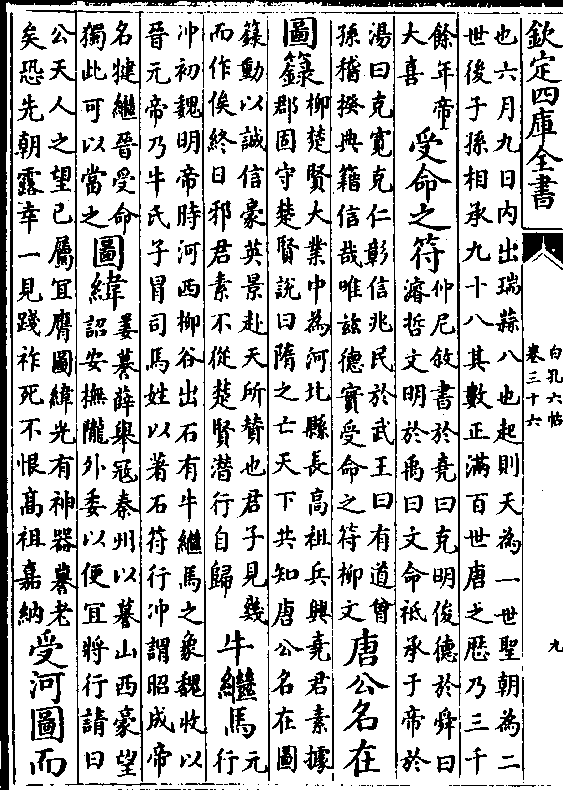 欽定四庫全書
白孔六帖
卷三十六
九
也六月九日内出瑞蒜八也起則天為一世聖朝為二
世後子孫相承九十八其數正滿百世唐之歴乃三千
餘年帝
大喜
受命之符
仲尼敘書於堯曰克明俊德於舜曰
濬哲文明於禹曰文命祗承于帝於
湯曰克寛克仁彰信兆民於武王曰有道曾
孫稽揆典籍信哉唯兹德實受命之符柳文
唐公名在
圖籙
柳楚賢大業中為河北縣長高祖兵興堯君素據
郡固守楚賢說曰隋之亡天下共知唐公名在圖
籙動以誠信豪英景赴天所賛也君子見幾
而作俟終日邪君素不從楚賢潜行自歸
牛繼馬
元
行
冲初魏明帝時河西柳谷出石有牛繼馬之象魏收以
晉元帝乃牛氏子冒司馬姓以著石符行冲謂昭成帝
名犍繼晉受命
獨此可以當之
圖緯
姜謩薛舉冦秦州以謩山西豪望
詔安撫隴外委以便宜將行請曰
公天人之望已屬宜膺圖緯光有神器謩老
矣恐先朝露幸一見踐祚死不恨高祖嘉納
受河圖而